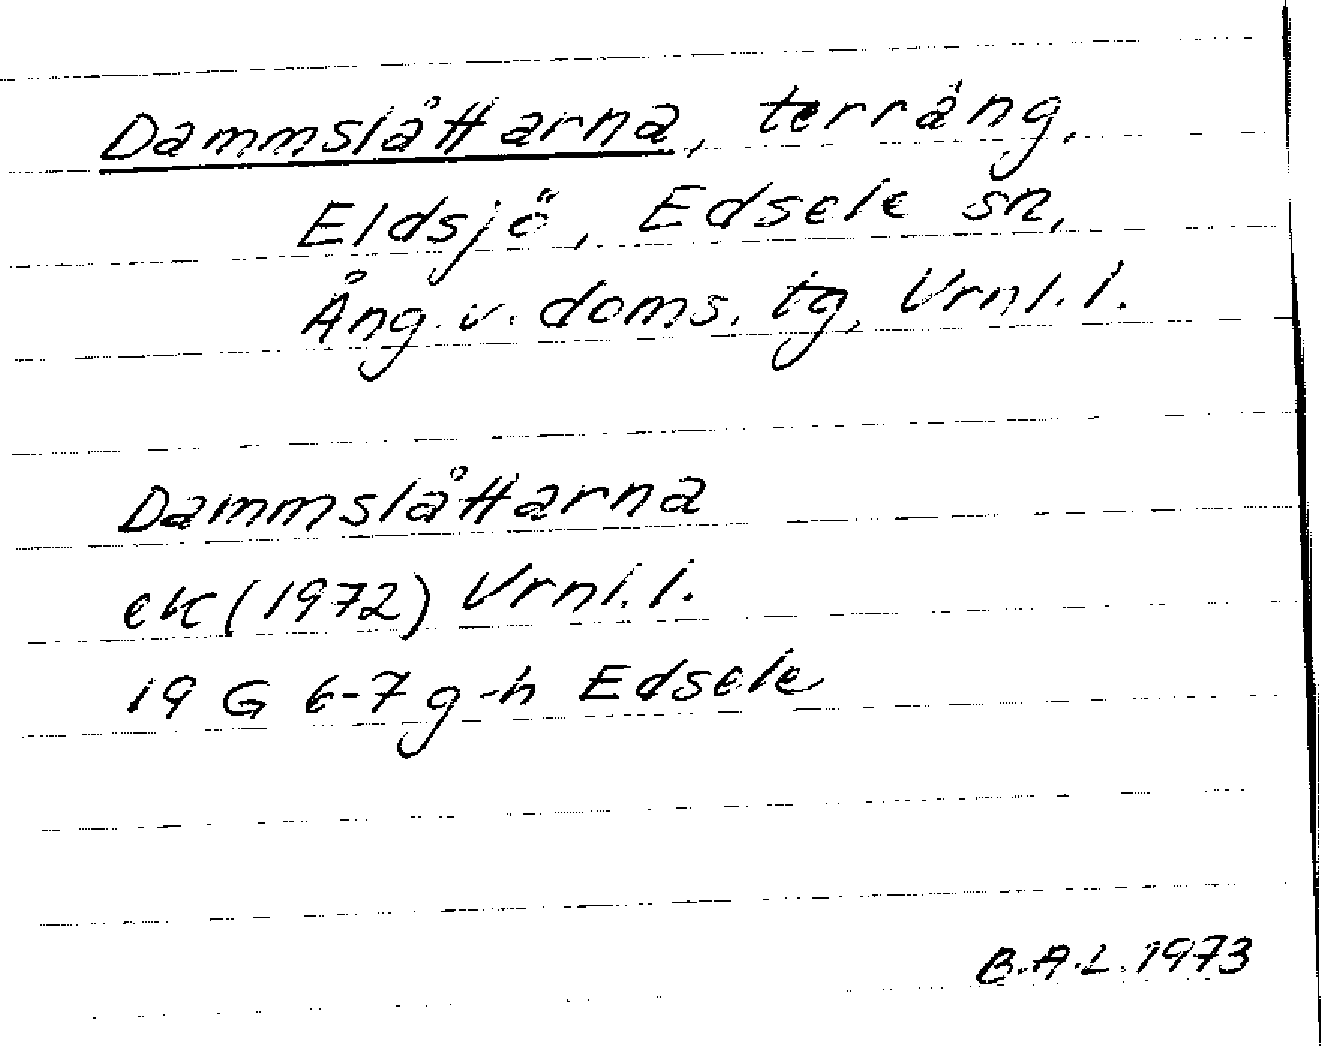 Dammslåttarna, terräng,
Eldsjö, Edsele sn,
Ång. v. doms. tg, Vrnl. l.
Dammslåttarna
ek (1972) Vrnl. l.
19 G 6-7 g-h Edsele
B.A.L. 1973